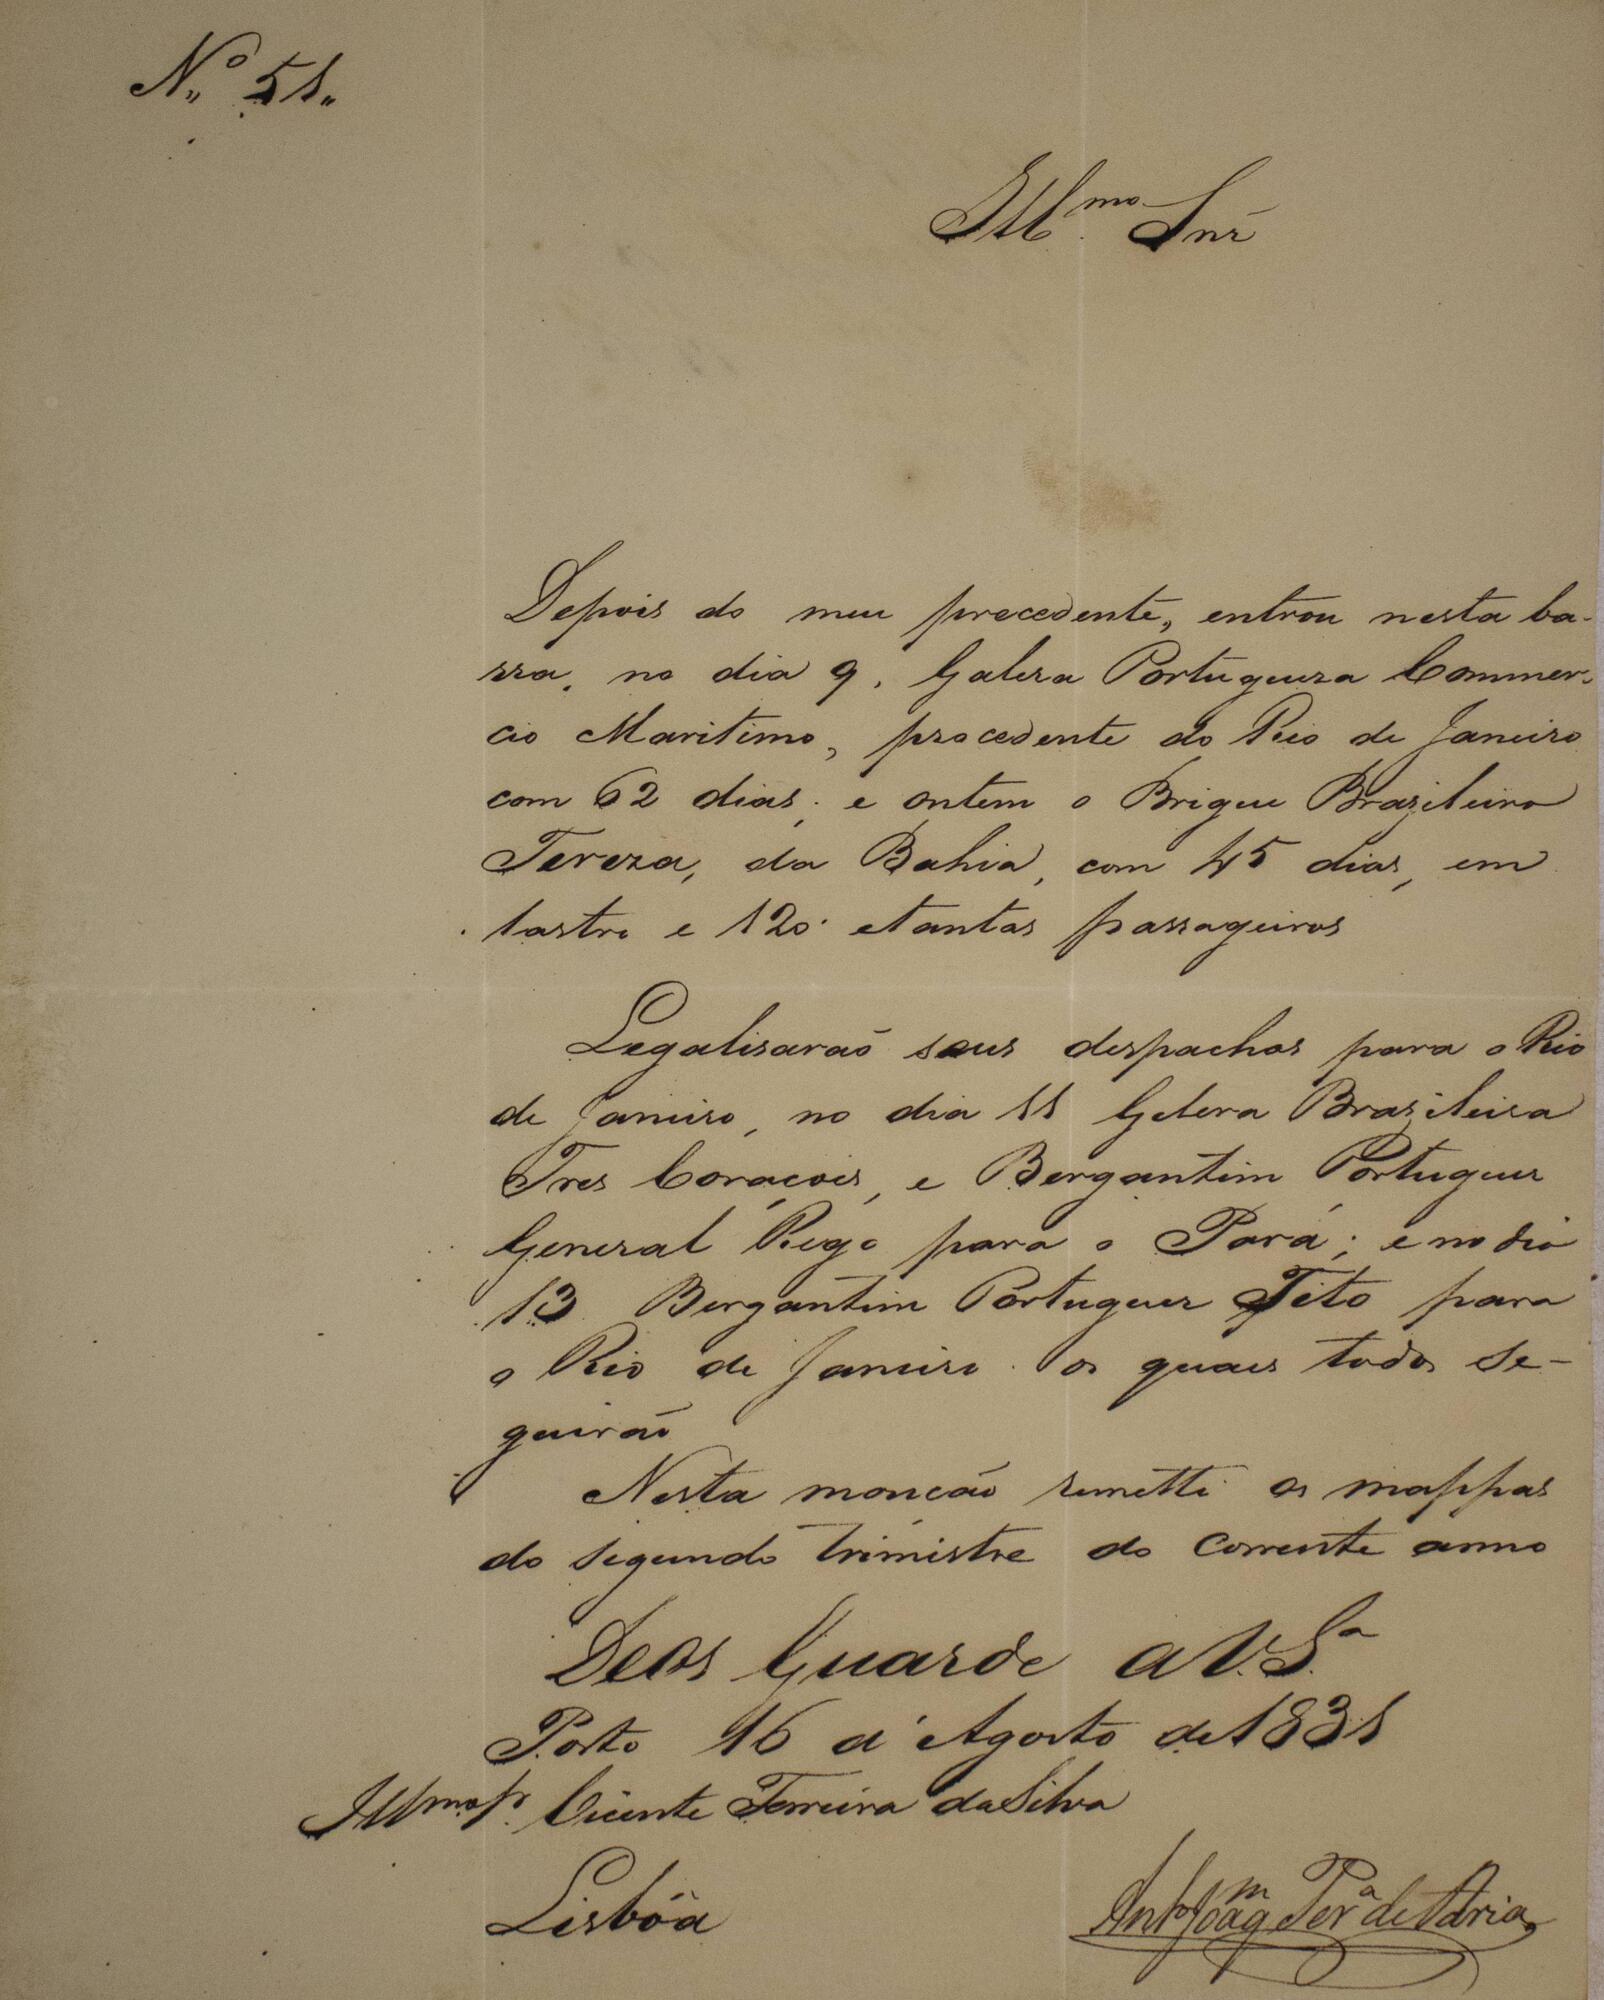 N.º 51.
Ill.mo Snr
Depois do meu precedente, entrou nesta ba-
rra, no dia 9, Galera Portugueza Commer-
cio Maritimo, procedente do Rio de Janeiro
com 62 dias; e ontem o Brigue Brazileiro
Tereza, da Bahia, com 45 dias, em
lastro e 120 e tantos passageiros
Legalisarão seus despachos para o Rio
de Janeiro, no dia 11 Galera Brazileira
Tres Coraçois, e Bergantim Portuguez
General Rego para o Pará; e no dia
13 Bergantim Portuguez Tito para
o Rio de Janeiro. os quaes todos se-
guirão
Nesta monção remetti os mappas
do segundo trimistre do corrente anno
Deos Guarde a V.S.ª
Porto 16 d'Agosto de 1831
Ill.mo Sr. Vicente Ferreira da Silva
Lisbôa
Ant.º Joaq.m Per.ª de Faria